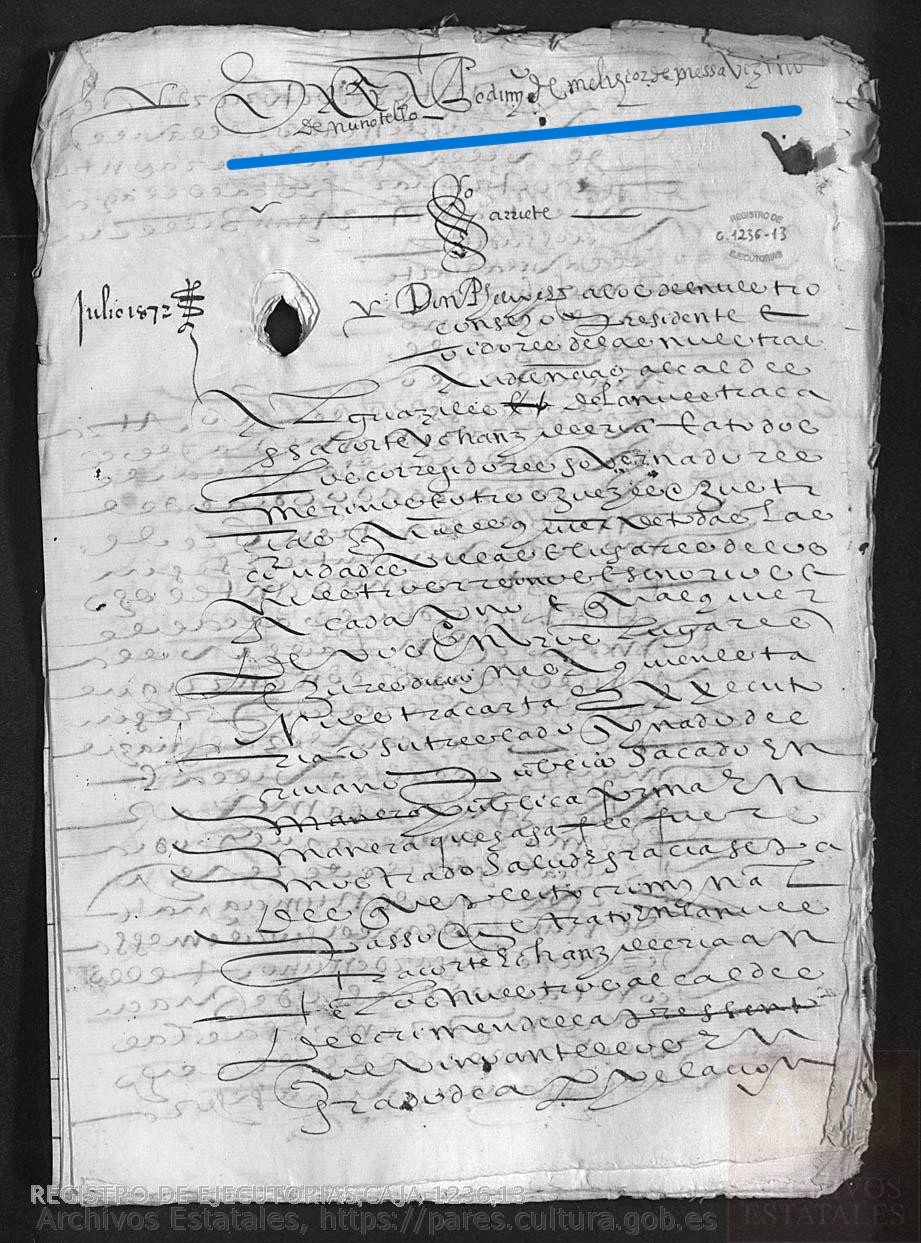 Executoria a pedimiº de melchor de pressa Vezino
de nunotello
Vº
arriete
REGISTRO DE
C. 1236-13
EJECUTORIAS
Julio 1872
Don Phelipe ss a los del nuestro
consejo Presidente E
oidores de la nuestra
audiencia alcaldes
alguaziles de la nuestra ca
ssa corte y chanzilleria E a todos
los corregidores governadores
merinos E otros juezes E justi
cias qualesquier de todas las
ciudades villas E lugares de los
nuestros rreinos E señorios E
a cada uno E qualquier
de vos En vros lugares
E juresdiciones a quien esta
nuestra carta executo
ria o su treslado signado de es
crivano Publico sacado En
Publica forma En
manera que haga fee fuere
mostrado Salud E gracia Sepa
des que Pleito criminal
Passo E se trato En la nues
tra corte E chanzilleria an
te los nuestros alcaldes
del crimen della
que vino ante ellos En
grado de apelacion
REGISTRO DE EJECUTORIAS,CAJA 1236,13
Archivos Estatales, https://pares.cultura.gob.es
ARCHIVOS
ESTATALES